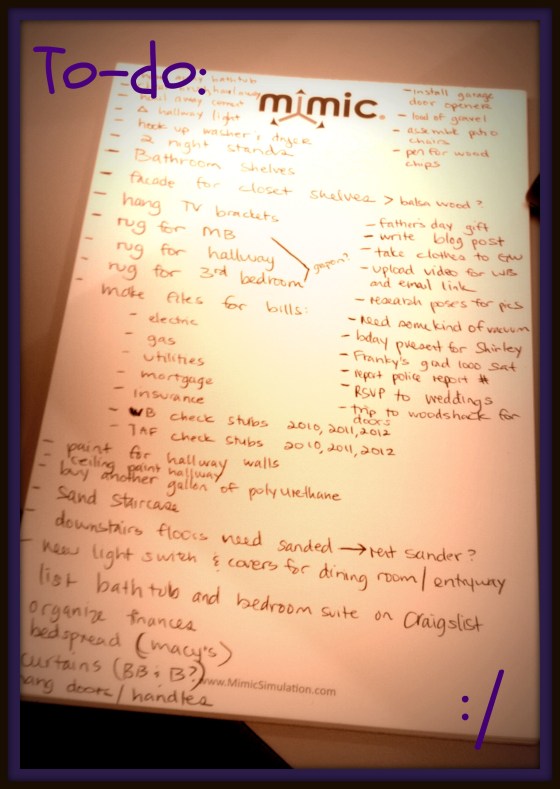 To-do:
bathtub
hallway light
hook up washer & dryer
2 night stands
Bathroom shelves
facade for closet shelves > balsa wood?
hang TV brackets
rug for MB
rug for hallway
rug for 3rd bedroom
make files for bills:
- electric
- gas
- utilities
- mortgage
- insurance
- WB check stubs 2010, 2011, 2012
- TAF check stubs 2010, 2011, 2012
- paint for hallway walls
- ceiling paint hallway
- buy another gallon of polyurethane
- sand staircase
- downstairs floors need sanded → rent sander?
- new light switch & covers for dining room / entryway
list bath tub and bedroom suite on Craigslist
organize finances
bedspread (macy's)
curtains (BB & B?)
hang doors / handles
mimic
- install garage
door openers
- load of gravel
- assemble patio
chairs
- pen for wood
chips
- father's day gift
- write blog post
- take clothes to GW
- upload video for WB
and email link
- research poses for pics
- need some kind of vacuum
- bday present for Shirley
- Franky's grad 1000 Sat
- report police report #
- RSVP to weddings
- trip to woodshack for
doors
www.MimicSimulation.com
:/